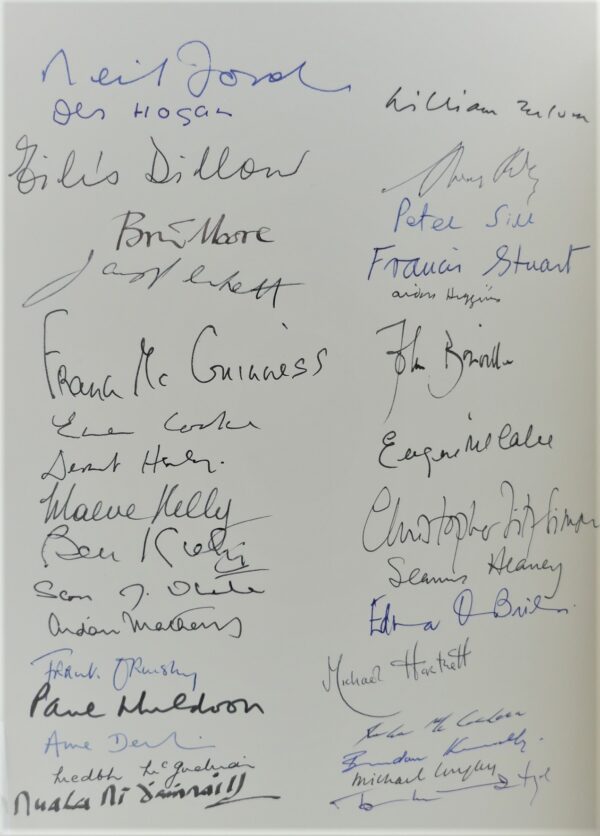 Neil Jord
Des Hogan
Eilís Dillon
Brian Moore
Frank Mc Guinness
Emma Cooke
Dermot Healy.
Maeve Kelly
Ben Kiely
Sean J.
Aidan Mathews
Frank Ormsby
Paul Muldoon
Anne Devlin
Medbh McGuckian
Nuala Ní Dhomhnaill
William
Peter Sirr
Francis Stuart
Aidan Higgins
John Banville
Eugene McCabe
Christopher Fitz-Simon
Seamus Heaney
Edna O'Brien.
Michael Hartnett
Brendan Kennelly.
Michael Longley